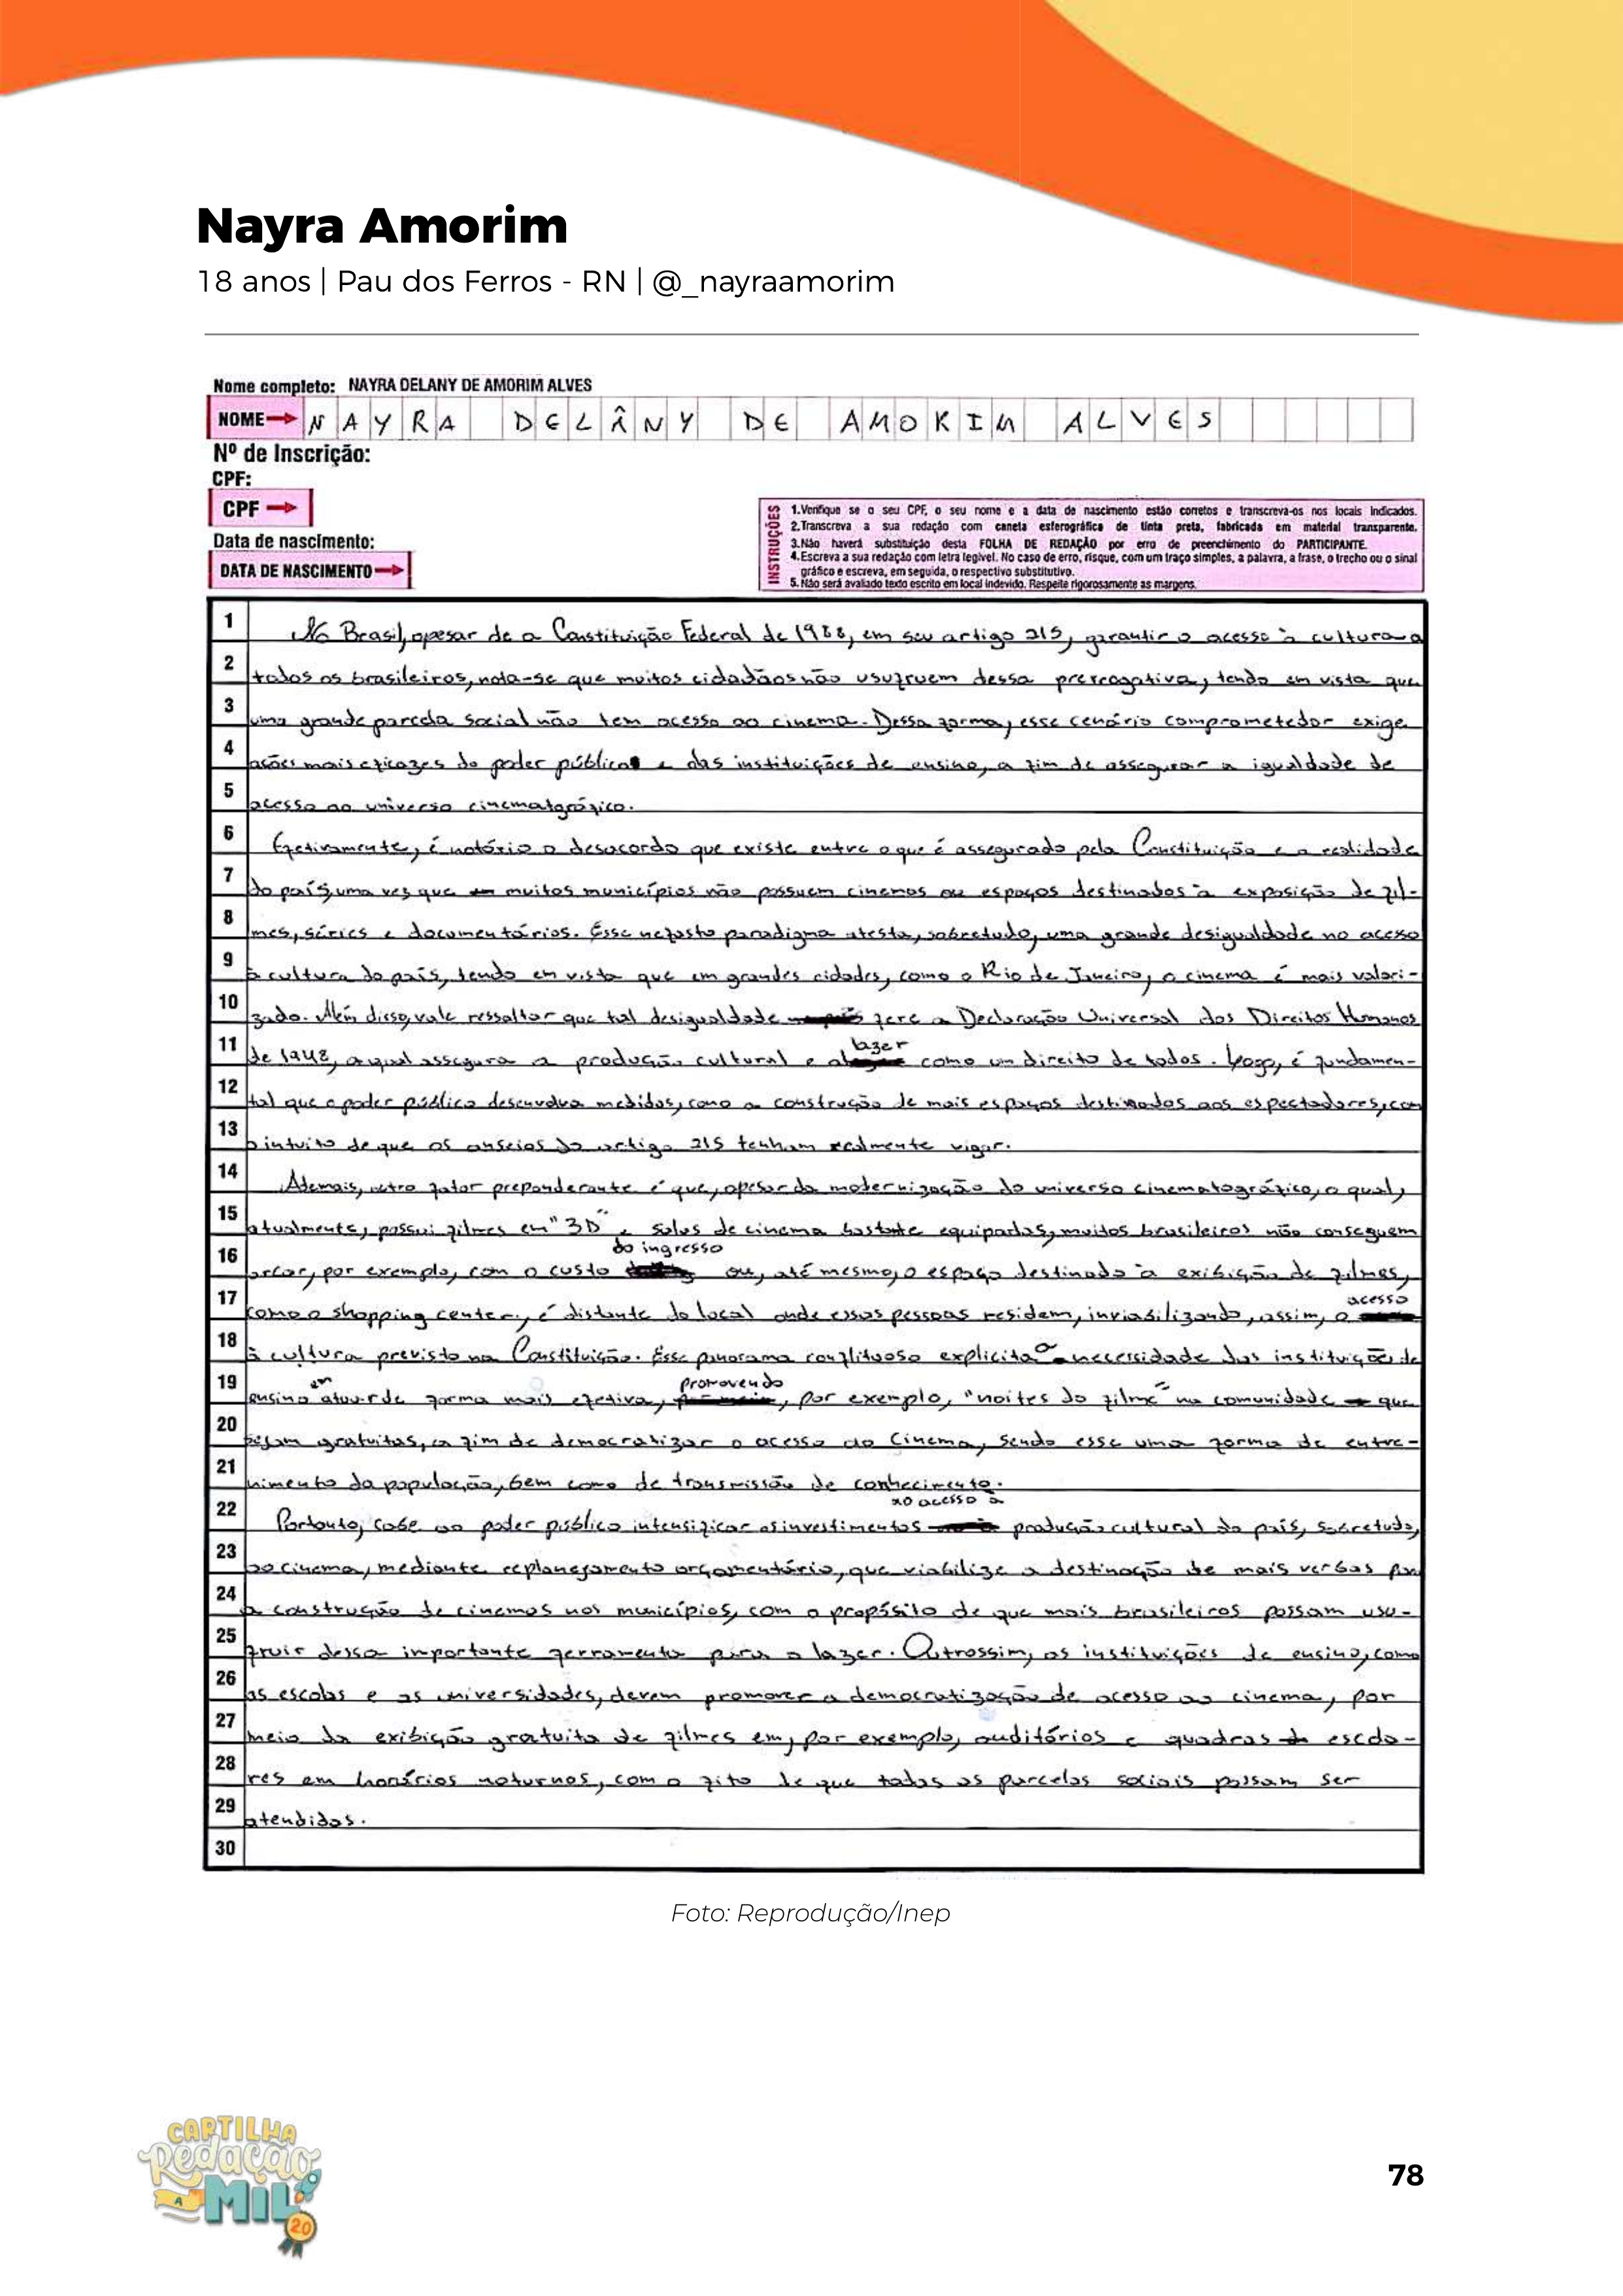 Nayra Amorim
18 anos | Pau dos Ferros - RN | @_nayraamorim
Nome completo: NAYRA DELANY DE AMORIM ALVES
NOME NAYRA DELÂNY DE AMORIM ALVES
Nº de Inscrição:
CPF:
CPF
Data de nascimento:
DATA DE NASCIMENTO
INSTRUÇÕES
1.Verifique se o seu CPF, o seu nome e a data de nascimento estão corretos e transcreva-os nos locais indicados.
2.Transcreva a sua redação com caneta esferográfica de tinta preta, fabricada em material transparente.
3.Não haverá substituição desta FOLHA DE REDAÇÃO por erro de preenchimento do PARTICIPANTE.
4.Escreva a sua redação com letra legível. No caso de erro, risque, com um traço simples, a palavra, a frase, o trecho ou o sinal
gráfico e escreva, em seguida, o respectivo substitutivo.
5.Não será avaliado texto escrito em local indevido. Respeite rigorosamente as margens.
1 No Brasil, apesar de a Constituição Federal de 1988, em seu artigo 215, garantir o acesso à cultura a
2 todos os brasileiros, nota-se que muitos cidadãos não usufruem dessa prerrogativa, tendo em vista que
3 uma grande parcela social não tem acesso ao cinema. Dessa forma, esse cenário comprometedor exige
4 ações mais eficazes do poder público e das instituições de ensino, a fim de assegurar a igualdade de
5 acesso ao universo cinematográfico.
6 Efetivamente, é notório o desacordo que existe entre o que é assegurado pela Constituição e a realidade
7 do país, uma vez que muitos municípios não possuem cinemas ou espaços destinados à exposição de fil-
8 mes, séries e documentários. Esse nefasto paradigma atesta, sobretudo, uma grande desigualdade no acesso
9 à cultura do país, tendo em vista que em grandes cidades, como o Rio de Janeiro, o cinema é mais valori-
10 zado. Além disso, vale ressaltar que tal desigualdade fere a Declaração Universal dos Direitos Humanos
11 de 1948, a qual assegura a produção cultural e o lazer como um direito de todos. Logo, é fundamen-
12 tal que o poder público desenvolva medidas, como a construção de mais espaços destinados aos espectadores, com
13 o intuito de que os anseios do artigo 215 tenham realmente vigor.
14 Ademais, outro fator preponderante é que, apesar da modernização do universo cinematográfico, o qual,
15 atualmente, possui filmes em "3D" e salas de cinema bastante equipadas, muitos brasileiros não conseguem
16 arcar, por exemplo, com o custo do ingresso ou, até mesmo, o espaço destinado à exibição de filmes,
17 como o shopping center, é distante do local onde essas pessoas residem, inviabilizando, assim, o acesso
18 à cultura previsto na Constituição. Esse panorama conflituoso explicita a necessidade das instituições de
19 ensino em atuar de forma mais efetiva, promovendo, por exemplo, "noites do filme" na comunidade que
20 sejam gratuitas, a fim de democratizar o acesso ao Cinema, sendo esse uma forma de entre-
21 nimento da população, bem como de transmissão de conhecimento.
22 Portanto, cabe ao poder público intensificar os investimentos no acesso à produção cultural do país, sobretudo,
23 ao cinema, mediante replanejamento orçamentário, que viabilize a destinação de mais verbas para
24 a construção de cinemas nos municípios, com o propósito de que mais brasileiros possam usu-
25 fruir dessa importante ferramenta para o lazer. Outrossim, as instituições de ensino, como
26 as escolas e as universidades, devem promover a democratização de acesso ao cinema, por
27 meio da exibição gratuita de filmes em, por exemplo, auditórios e quadras escola-
28 res em horários noturnos, com o fito de que todas as parcelas sociais possam ser
29 atendidas.
30
Foto: Reprodução/Inep
CARTILHA
Redação
A
MIL
20
78